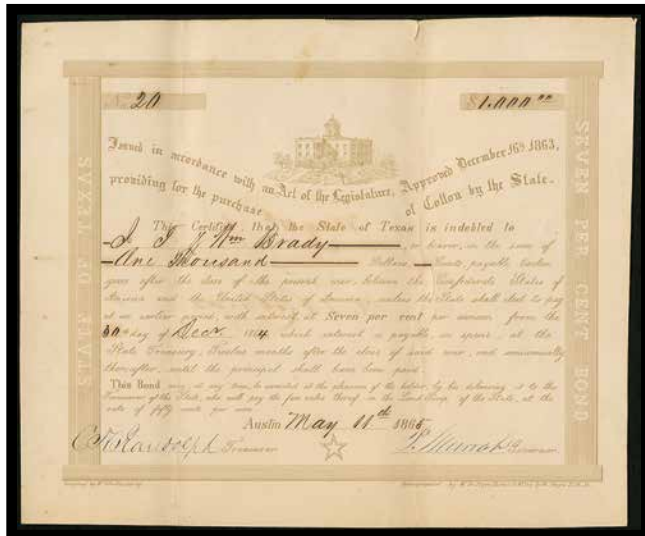 No 20
$1.000 00
Issued in accordance with an Act of the Legislature, Approved December 16th 1863,
providing for the purchase of Cotton by the State.
This Certifies, that the State of Texas is indebted to
Wm Brady or bearer, in the sum of
One Thousand Dollars, Cents, payable twelve
years after the close of the present war, between the Confederate States of
America and the United States of America, unless the State shall elect to pay
at an earlier period, with interest at Seven per cent per annum, from the
30th day of Decr. 1864, which interest is payable, in specie, at the
State Treasury, Twelve months after the close of said war, and semiannually
thereafter, until the principal shall have been paid.
This Bond may, at any time, be converted at the pleasure of the holder, by his delivering it to the
Treasurer of the State, who will pay the face value thereof in the Land Scrip, of the State, at the
rate of fifty cents per acre.
Austin May 11th 1865
C. H. Randolph Treasurer
P. Murrah Governor
STATE OF TEXAS
SEVEN PER CENT BOND